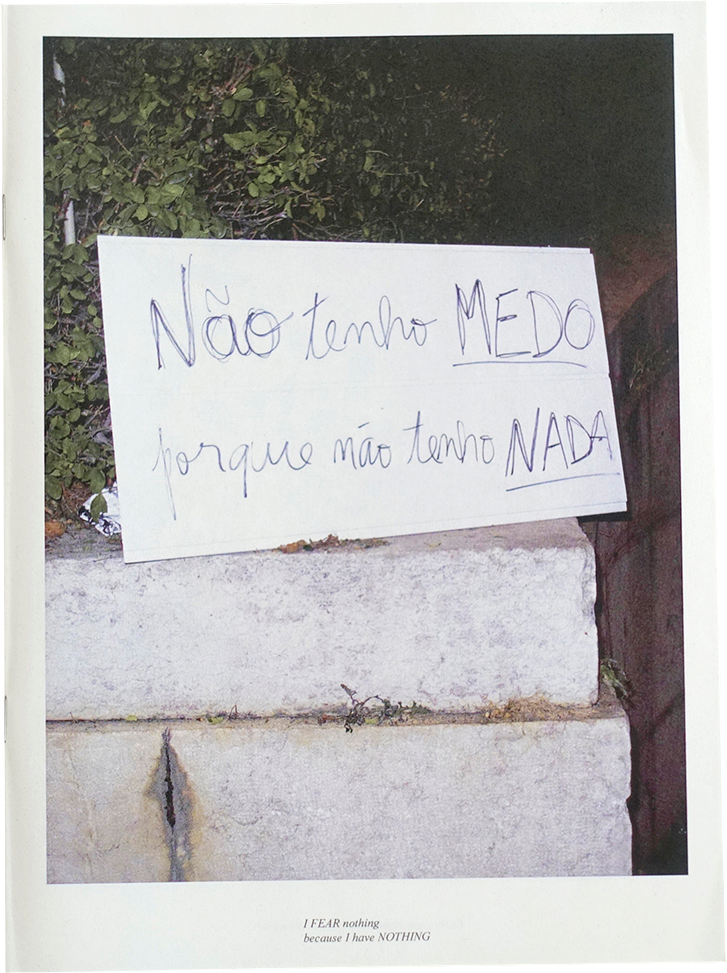 Não tenho MEDO
porque não tenho NADA
I FEAR nothing
because I have NOTHING